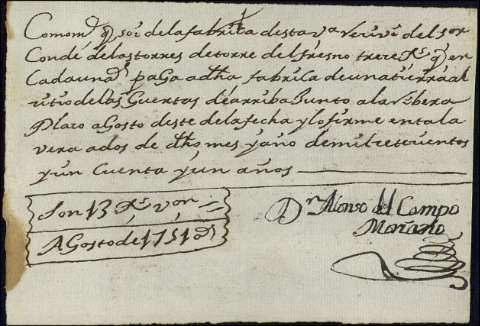 Como mᵒ q̃ soi de la fabrica de esta vª Reciví del sor
Conde de las torres de torre del fresno trece Rˢ q̃ en
Cada un Dº paGa a dha fabrica de una tierra al
sitio de las Guertas de arriba Junto a la Ribera
Plazo aGosto de este de la fecha y lo firme en tala
vera a dos de dho mes y año de mil setecientos
y cin Cuenta y un años
Son 13 Rˢ von
AGosto de 1751 as
Dn Alonso del Campo
Moriano